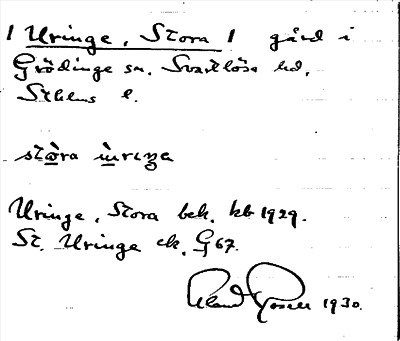 1 Uringe, Stora 1 gård i
Grödinge sn. Svartlösa hd.
Sthlms l.
stòra ùringe
Uringe, Stora bek. kb 1929.
St. Uringe ek. G 67.
1930.